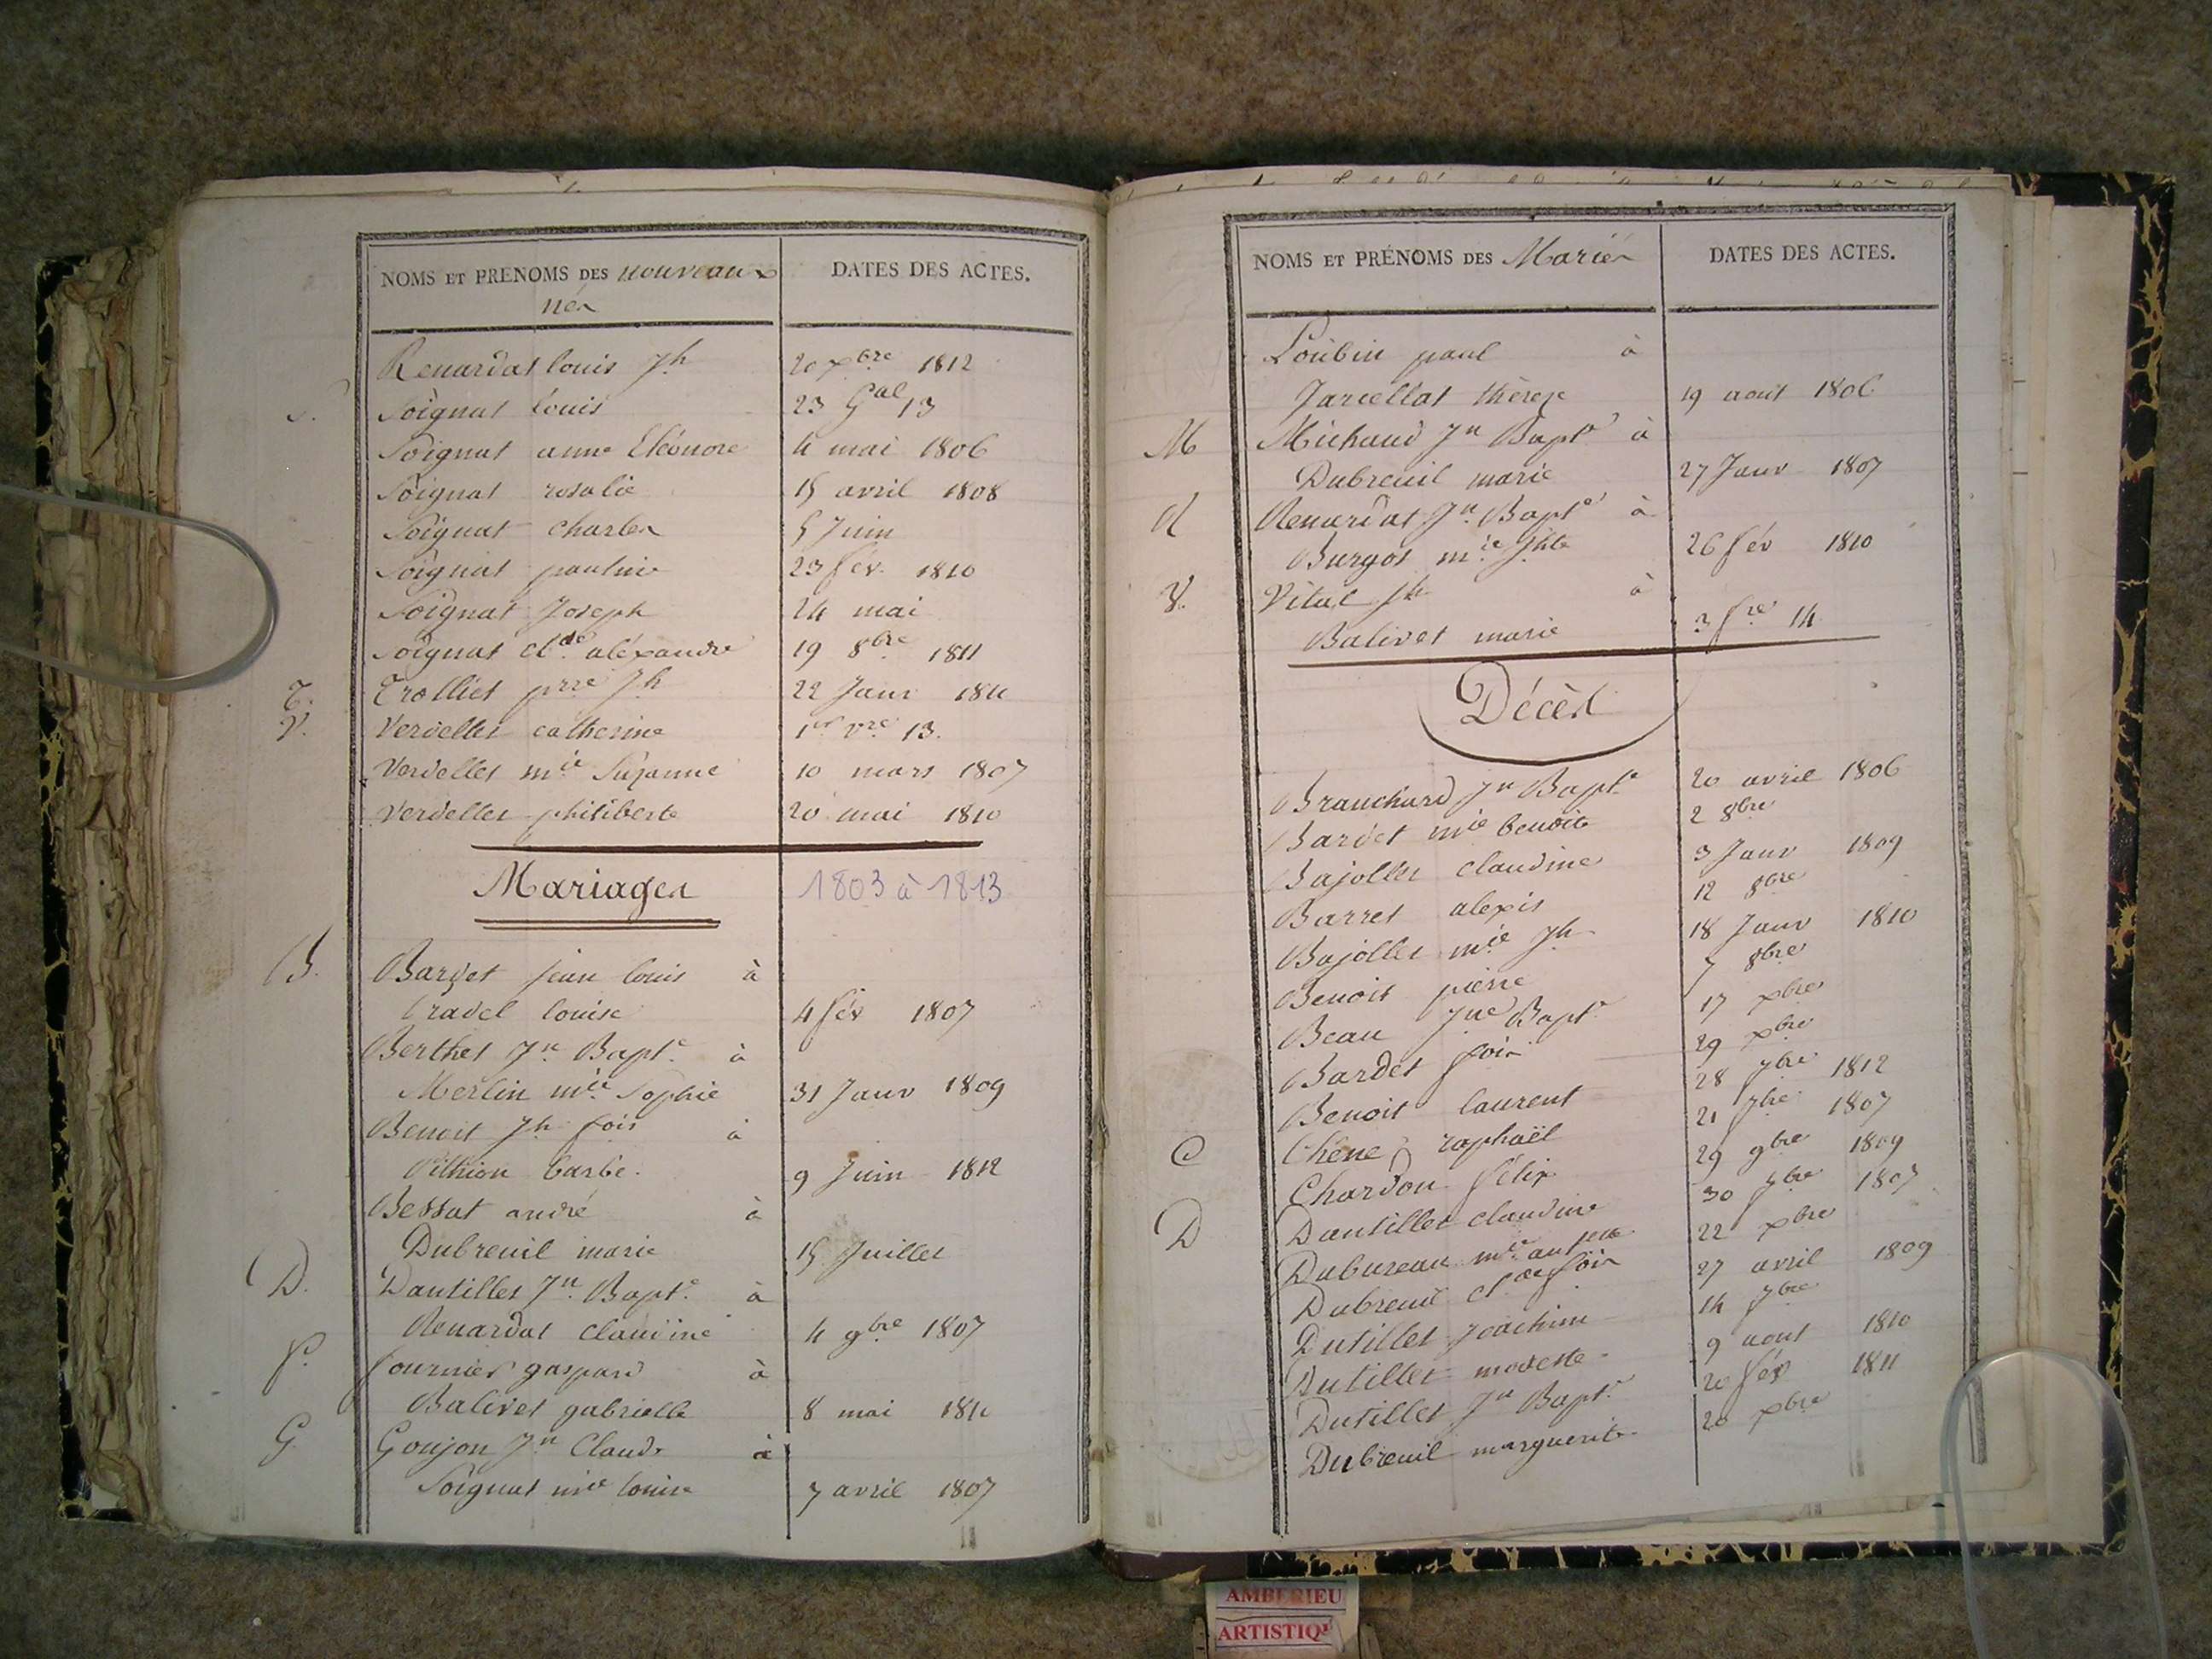 NOMS ET PRENOMS DES nouveaux
nés
DATES DES ACTES.
Renardat louis Jh 20 xbre 1812
S. Soignat louis 23 Gal 13
Soignat anne Eléonore 4 mai 1806
Soignat rosalie 15 avril 1808
Soignat charles 5 Juin
Soignat pauline 23 fév. 1810
Soignat Joseph 24 mai
Soignat Clde alexandre 19 8bre 1811
T. Trolliet prre Jh 22 Janv 1811
V. Verdellet catherine 1er vre 13.
Verdellet mie Suzanne 10 mars 1807
Verdellet philiberte 20 mai 1810
Mariages 1803 à 1813
B. Bardet jean louis à
Cradel louise 4 fév 1807
Berthet Jn Bapte à
Merlin mie Sophie 31 Janv 1809
Benoit Jh fois à
Pithion barbe. 9 Juin 1812
Bessat andré à
Dubreuil marie 15 Juillet
D. Dantillet Jn Bapte à
Renardat claudine 4 9bre 1807
f. fournier gaspard à
Balivet gabrielle 8 mai 1811
G Goujon Jn Claude à
Soignat mie louise 7 avril 1807
NOMS ET PRÉNOMS DES Mariés
DATES DES ACTES.
Loubin paul à
Jarcellat thèrese 19 aout 1806
M Michaud Jn Bapte à
Dubreuil marie 27 Janv 1807
R Renardat Jn Bapte à
Burgos mie Jhte 26 fév 1810
V. Vital Jh à
Balivet marie 3 fre 14
Décès
Branchard Jn Bapte 20 avril 1806
Bardet mie benoite 2 8bre
Bajollet claudine 3 Janv 1809
Barret alexis 12 8bre
Bajollet mie Jh 18 Janv 1810
Benoit pierre 7 8bre
Beau Jne Bapte 17 xbre
Bardet fois 29 xbre
Benoit laurent 28 7bre 1812
C Chêne raphaël 21 7bre 1807
Chardon félix 29 9bre 1809
D Dantillet claudine 30 7bre 1807
Dubureau mie antte 22 xbre
Dubreuil clde fois 27 avril 1809
Dutillet Joachim 14 7bre
Dutillet modeste 9 aout 1810
Dutillet Jn Bapte 20 fév 1811
Dubreuil marguerite 20 xbre
AMBERIEU
ARTISTIQ